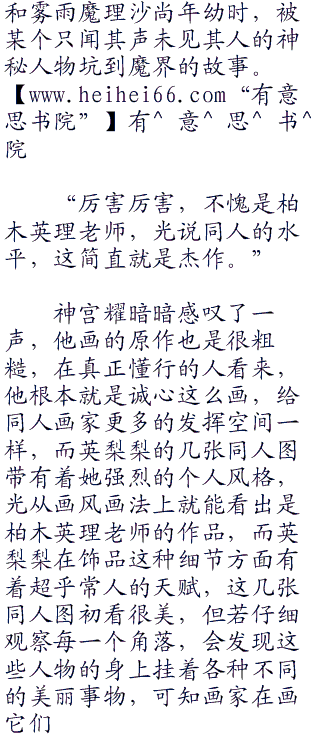 和雾雨魔理沙尚年幼时，被
某个只闻其声未见其人的神
秘人物坑到魔界的故事。
【www.heihei66.com“有意
思书院”】有^ 意^ 思^ 书^
院
“厉害厉害，不愧是柏
木英理老师，光说同人的水
平，这简直就是杰作。”
神宫耀暗暗感叹了一
声，他画的原作也是很粗
糙，在真正懂行的人看来，
他根本就是诚心这么画，给
同人画家更多的发挥空间一
样，而英梨梨的几张同人图
带有着她强烈的个人风格，
光从画风画法上就能看出是
柏木英理老师的作品，而英
梨梨在饰品这种细节方面有
着超乎常人的天赋，这几张
同人图初看很美，但若仔细
观察每一个角落，会发现这
些人物的身上挂着各种不同
的美丽事物，可知画家在画
它们